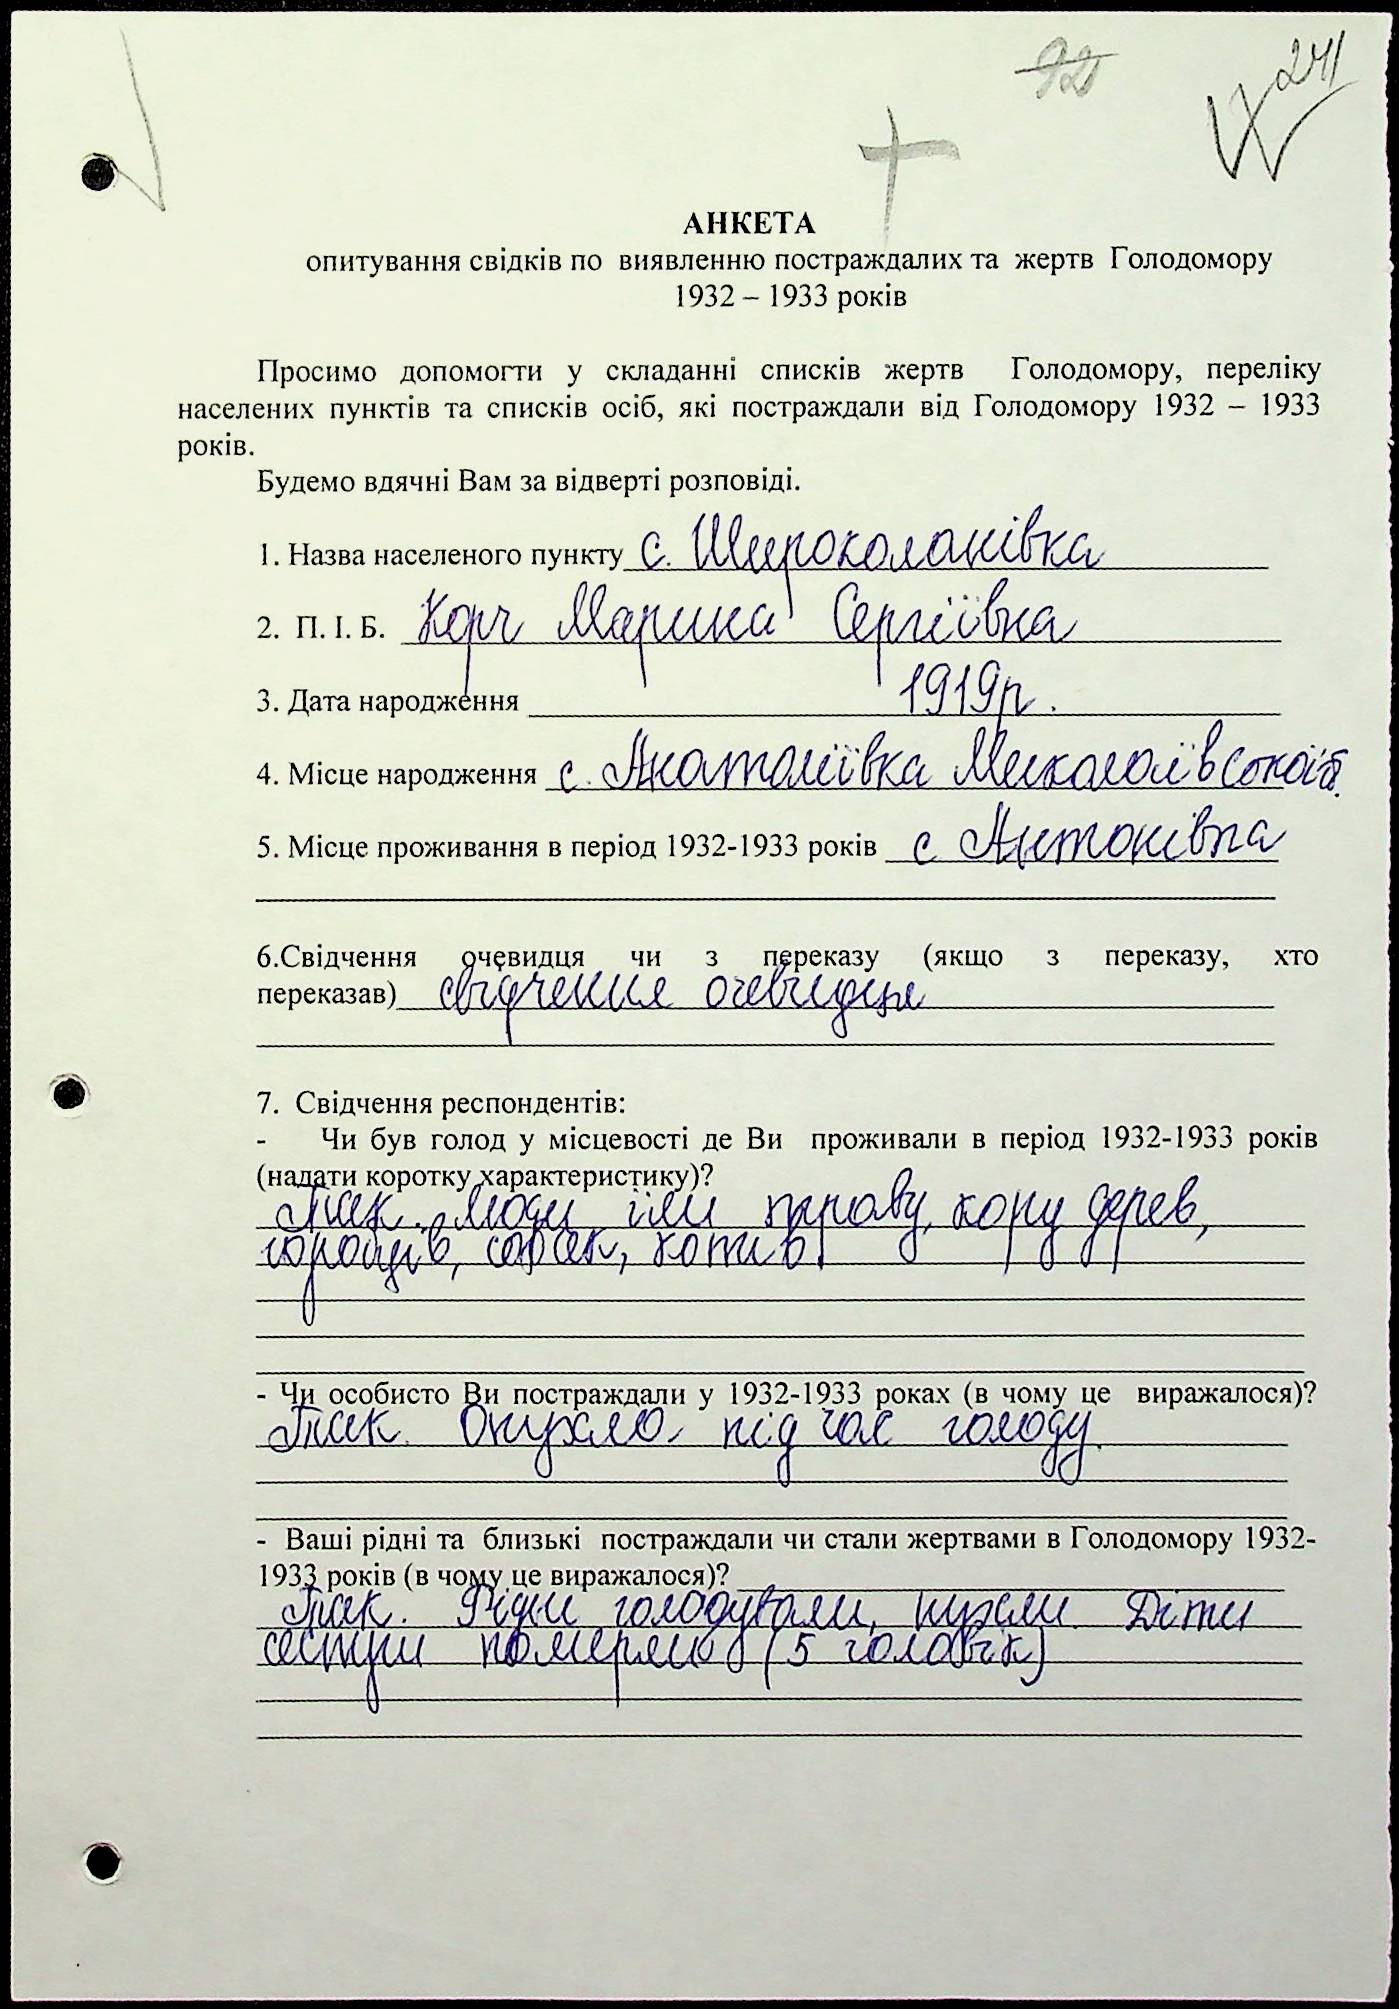 92
241
АНКЕТА
опитування свідків по виявленню постраждалих та жертв Голодомору
1932 – 1933 років
Просимо допомогти у складанні списків жертв Голодомору, переліку
населених пунктів та списків осіб, які постраждали від Голодомору 1932 – 1933
років.
Будемо вдячні Вам за відверті розповіді.
1. Назва населеного пункту с. Широколанівка
2. П. І. Б. Корч Марина Сергіївна
3. Дата народження 1919р.
4. Місце народження с. Анатоліївка Миколаївської
5. Місце проживання в період 1932-1933 років с Антонівка
6.Свідчення очевидця чи з переказу (якщо з переказу, хто
переказав) свідчення очевидця
7. Свідчення респондентів:
- Чи був голод у місцевості де Ви проживали в період 1932-1933 років
(надати коротку характеристику)?
Так. Люди їли траву, кору дерев,
горобців, собак, котів.
- Чи особисто Ви постраждали у 1932-1933 роках (в чому це виражалося)?
Так. Опухла під час голоду.
- Ваші рідні та близькі постраждали чи стали жертвами в Голодомору 1932-
1933 років (в чому це виражалося)?
Так. Рідні голодували, пухли. Діти
сестри померли (5 головік)